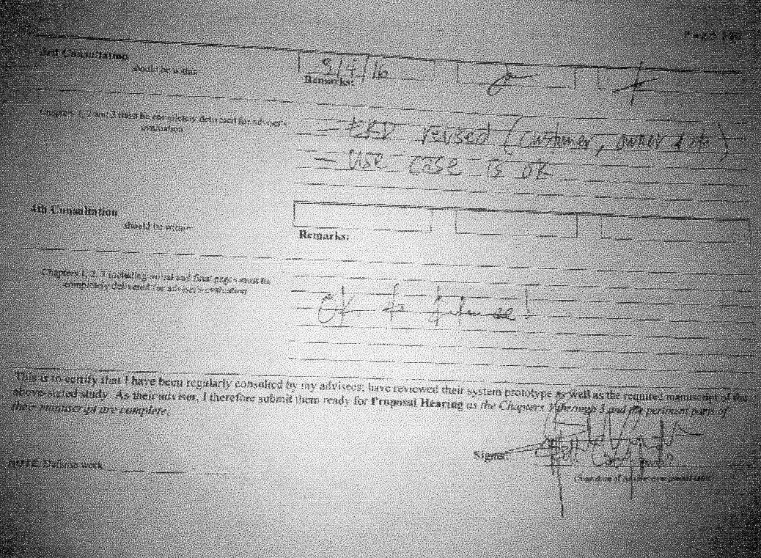 3rd Consultation
should be within
3/4/16
Remarks:
Chapters 1, 2 and 3 must be completely delivered for adviser's
evaluation
- ERD revised (customer, owner
- Use case is OK
4th Consultation
should be within
Remarks:
Chapters 1, 2, 3 including initial and final pages must be
completely delivered for adviser's evaluation
OK to
This is to certify that I have been regularly consulted by my advisees; have reviewed their system prototype as well as the required manuscript of the
above-stated study. As their adviser, I therefore submit them ready for Proposal Hearing as the Chapters 1 through 3 and the pertinent parts of
their manuscript are complete.
Signed:
NOTE: Defense week